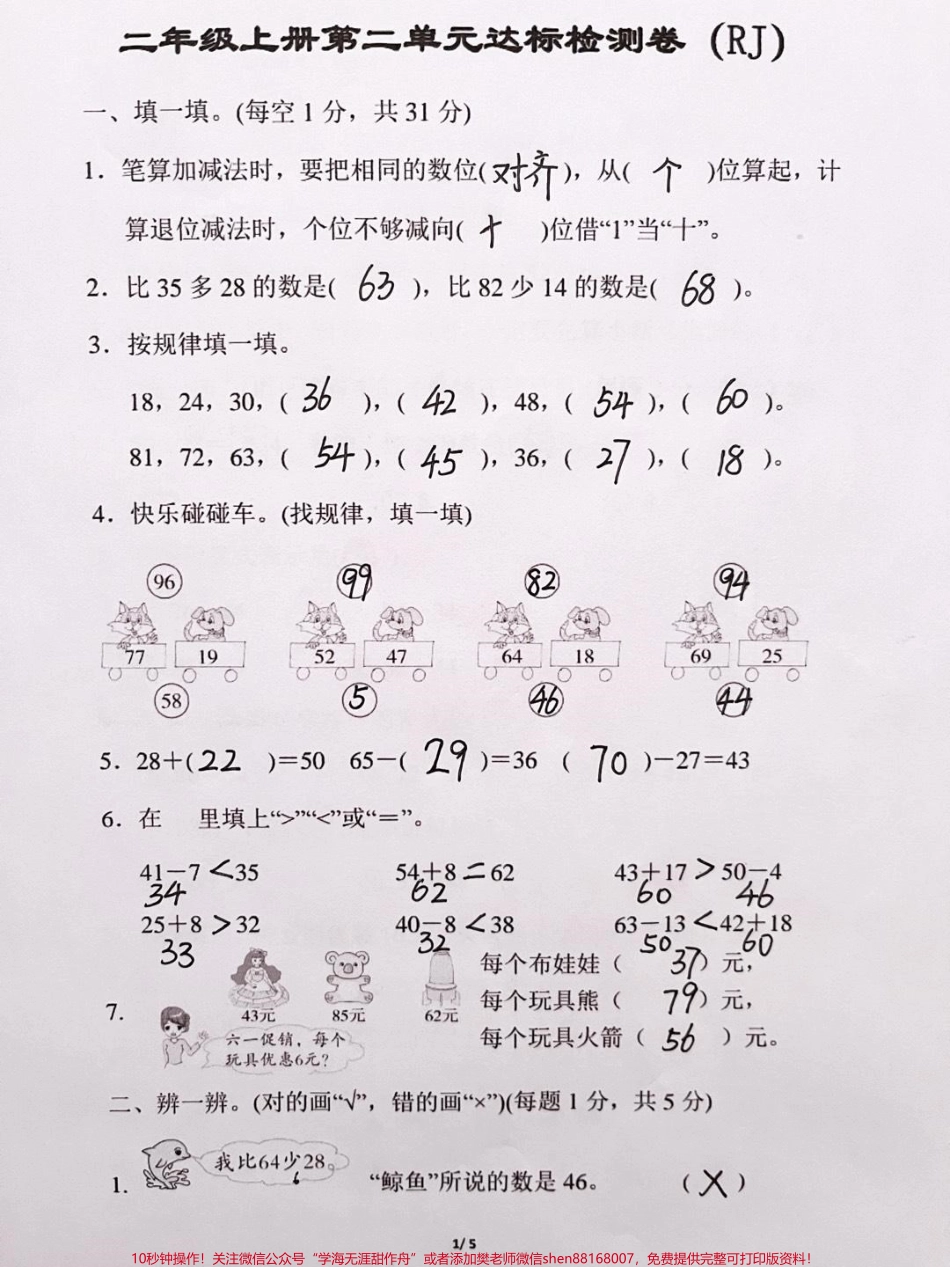 二年级上册第二单元达标检测卷 (RJ)
一、填一填。(每空1分，共31分)
1. 笔算加减法时，要把相同的数位(对齐)，从( 个 )位算起，计
算退位减法时，个位不够减向( 十 )位借“1”当“十”。
2. 比35多28的数是( 63 )，比82少14的数是( 68 )。
3. 按规律填一填。
18，24，30，( 36 )，( 42 )，48，( 54 )，( 60 )。
81，72，63，( 54 )，( 45 )，36，( 27 )，( 18 )。
4. 快乐碰碰车。(找规律，填一填)
96 99 82 94
77 19 52 47 64 18 69 25
58 5 46 44
5. 28+(22 )=50 65-( 29 )=36 ( 70 )-27=43
6. 在 里填上“>”“<”或“=”。
41-7<35 54+8=62 43+17>50-4
34 62 60 46
25+8>32 40-8<38 63-13<42+18
33 32 50 60
每个布娃娃（ 37）元，
每个玩具熊（ 79）元，
7. 43元 85元 62元
每个玩具火箭（ 56 ）元。
六一促销，每个
玩具优惠6元?
二、辨一辨。(对的画“√”，错的画“×”)(每题1分，共5分)
我比64少28。
6
1. “鲸鱼”所说的数是46。 ( X )
1/ 5
10秒钟操作！关注微信公众号“学海无涯甜作舟”或者添加樊老师微信shen88168007，免费提供完整可打印版资料！